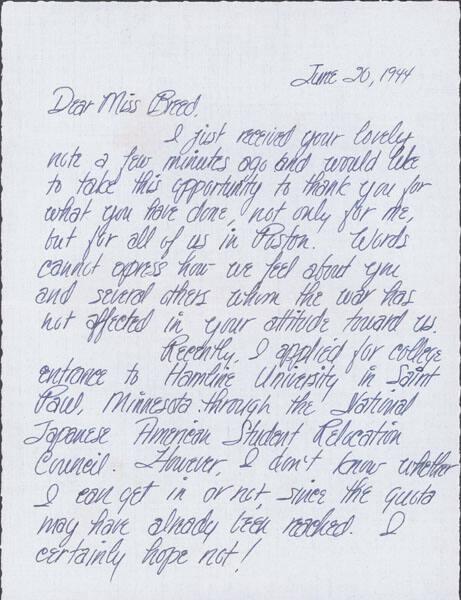 June 20, 1944
Dear Miss Breed,
I just received your lovely
note a few minutes ago and would like
to take this opportunity to thank you for
what you have done, not only for me,
but for all of us in Poston. Words
cannot express how we feel about you
and several others whom the war has
not affected in your attitude toward us.
Recently, I applied for college
entrance to Hamline University in Saint
Paul, Minnesota through the National
Japanese American Student Relocation
Council. However, I don't know whether
I can get in or not, since the quota
may have already been reached. I
certainly hope not!